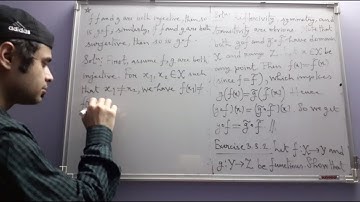 if f and g are both injective, then so
is g∘f; similarly, if f and g are both
surjective, then so is g∘f.
Soln: First, assume f, g are both
injective. For x₁, x₂ ∈ X such
that x₁ ≠ x₂, we have f(x₁) ≠
Soln: reflexivity, symmetry, and
transitivity are obvious. Note that
both g∘f and g̃∘f̃ have domain
X and range Z. Let x ∈ X be
any point. Then f(x) = f̃(x)
(since f = f̃), which implies
g(f(x)) = g̃(f̃(x)) 
(g∘f)(x) = (g̃∘f̃)(x). So we get
g∘f = g̃∘f̃.
Exercise 3.3.2. Let f: X → Y and
g: Y → Z be functions. Show that
adidas